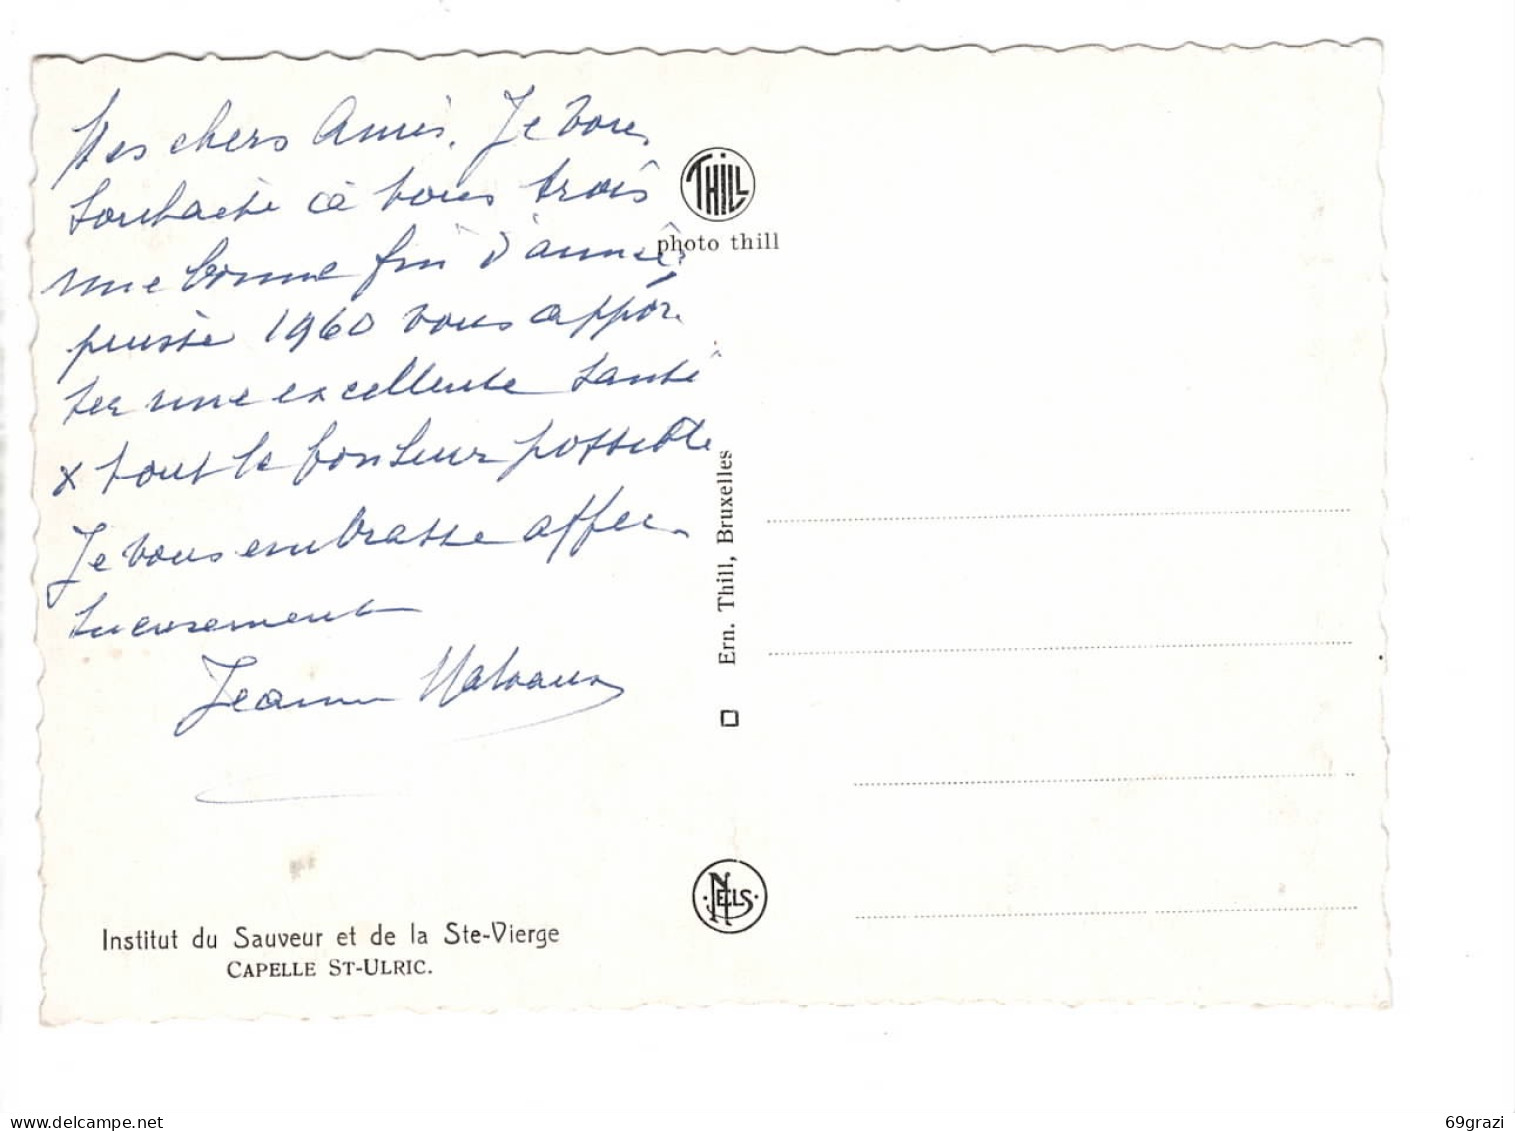 Mes chers Amis. Je vous
souhaite à tous trois
une bonne fin d'année
puisse 1960 vous appor-
ter une excellente santé
& tout le bonheur possible
Je vous embrasse affec-
tueusement
Jeanne Malvaux
THILL
photo thill
Ern. Thill, Bruxelles
NELS
Institut du Sauveur et de la Ste-Vierge
CAPELLE ST-ULRIC.
69grazi